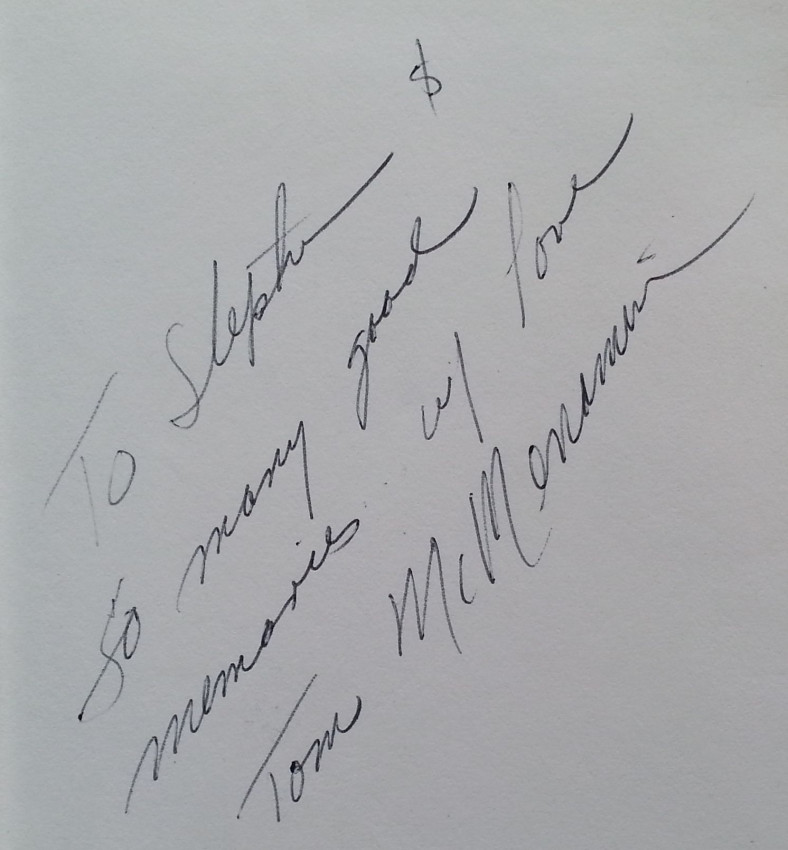 To Stephen $
So many good
memories w/ love
Tom McMenamin